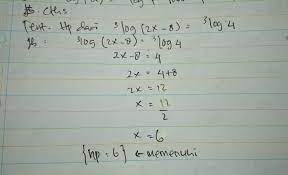 Cths.
Tent. Hp dari ³log (2x-8) = ³log 4
Jb : ³log (2x-8) = ³log 4
2x-8 = 4
2x = 4+8
2x = 12
x = 12/2
x = 6
{Hp = 6} ← memenuhi